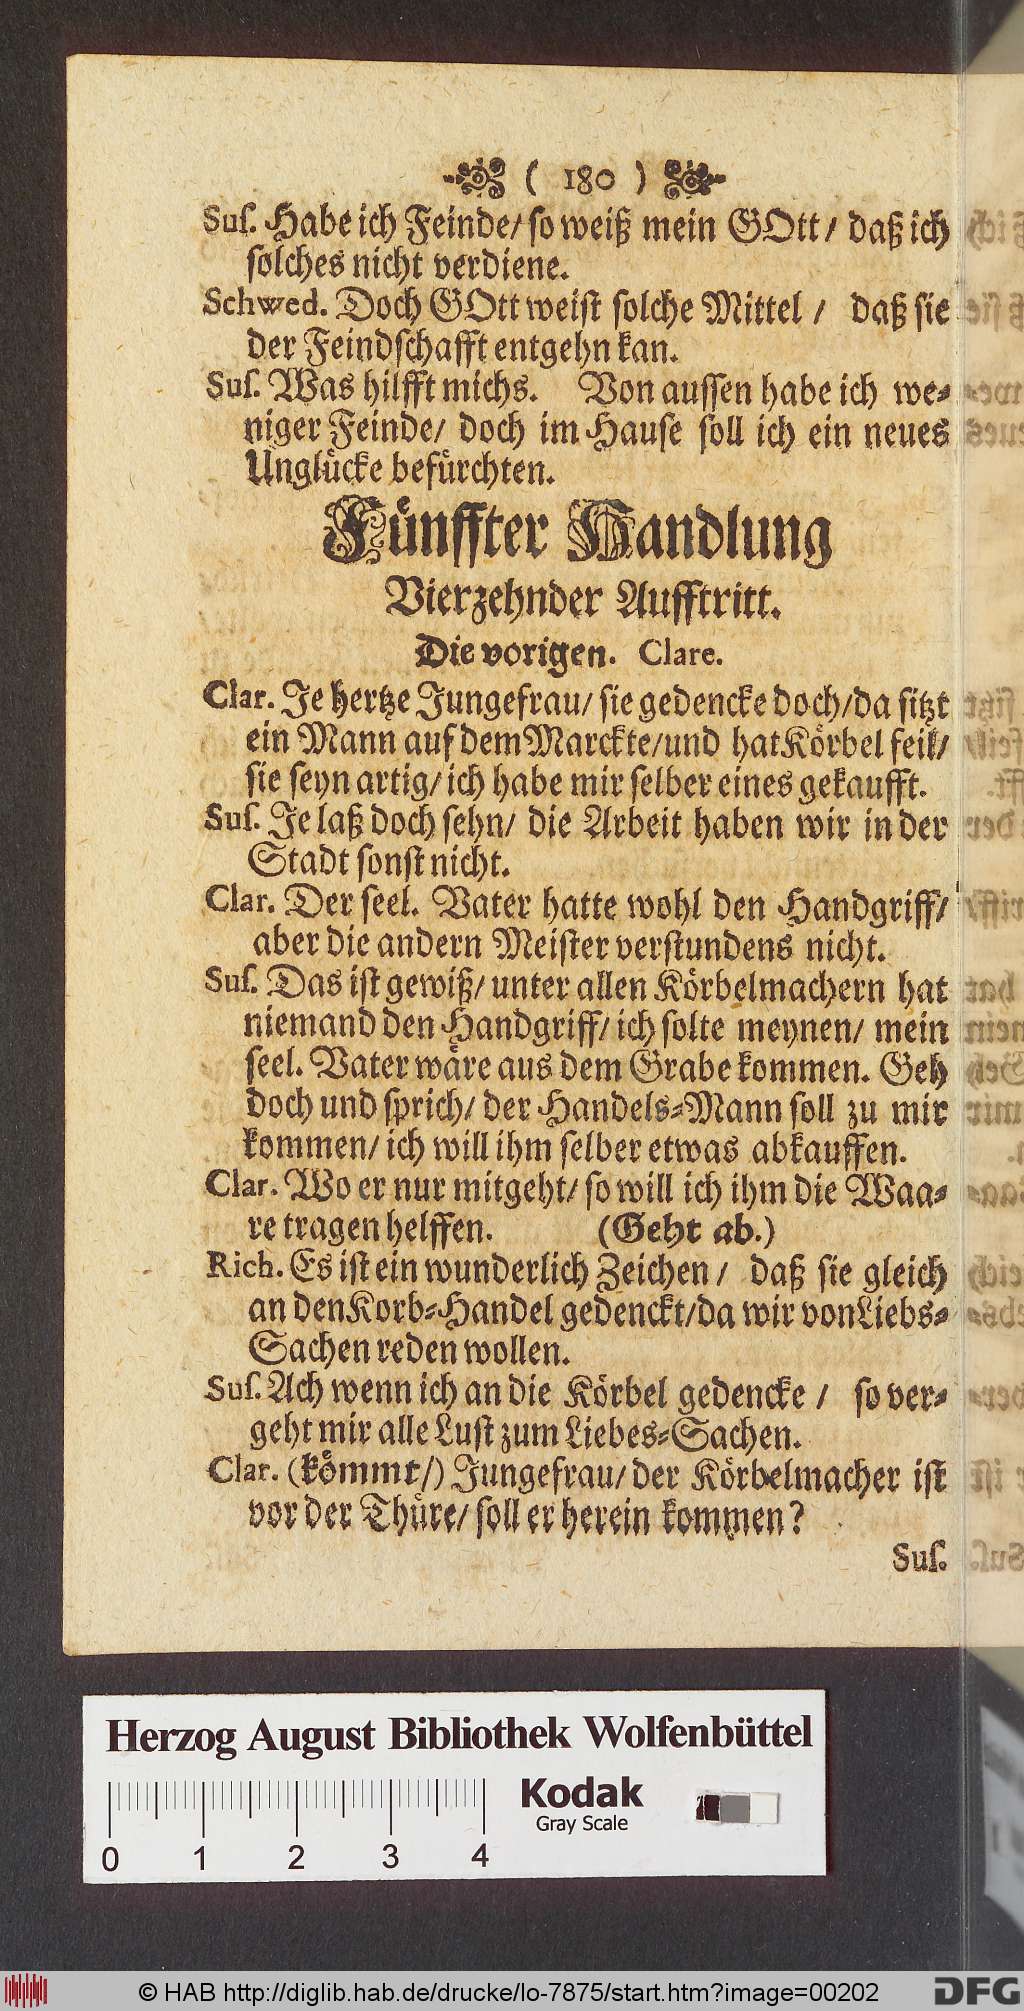 ( 180 )
Suſ. Habe ich Feinde/ ſo weiß mein GOtt/ daß ich
ſolches nicht verdiene.
Schwed. Doch GOtt weiſt ſolche Mittel / daß ſie
der Feindſchafft entgehn kan.
Suſ. Was hilfft michs. Von auſſen habe ich we⸗
niger Feinde/ doch im Hauſe ſoll ich ein neues
Unglücke befürchten.
Fünffter Handlung
Vierzehnder Aufftritt.
Die vorigen. Clare.
Clar. Je hertze Jungefrau/ ſie gedencke doch/da ſitzt
ein Mann auf dem Marckte/und hat Körbel feil/
ſie ſeyn artig/ ich habe mir ſelber eines gekaufft.
Suſ. Je laß doch ſehn/ die Arbeit haben wir in der
Stadt ſonſt nicht.
Clar. Der ſeel. Vater hatte wohl den Handgriff/
aber die andern Meiſter verſtundens nicht.
Suſ. Das iſt gewiß/ unter allen Körbelmachern hat
niemand den Handgriff/ ich ſolte meynen/ mein
ſeel. Vater wäre aus dem Grabe kommen. Geh
doch und ſprich/ der Handels⸗Mann ſoll zu mir
kommen/ ich will ihm ſelber etwas abkauffen.
Clar. Wo er nur mitgeht/ ſo will ich ihm die Waa⸗
re tragen helffen. (Geht ab.)
Rich. Es iſt ein wunderlich Zeichen / daß ſie gleich
an den Korb⸗Handel gedenckt/da wir von Liebs⸗
Sachen reden wollen.
Suſ. Ach wenn ich an die Körbel gedencke / ſo ver⸗
geht mir alle Luſt zum Liebes⸗Sachen.
Clar. (kömmt/) Jungefrau/ der Körbelmacher iſt
vor der Thüre/ ſoll er herein kommen?
Suſ.
Herzog August Bibliothek Wolfenbüttel
Kodak
Gray Scale
0 1 2 3 4
© HAB http://diglib.hab.de/drucke/lo-7875/start.htm?image=00202
DFG